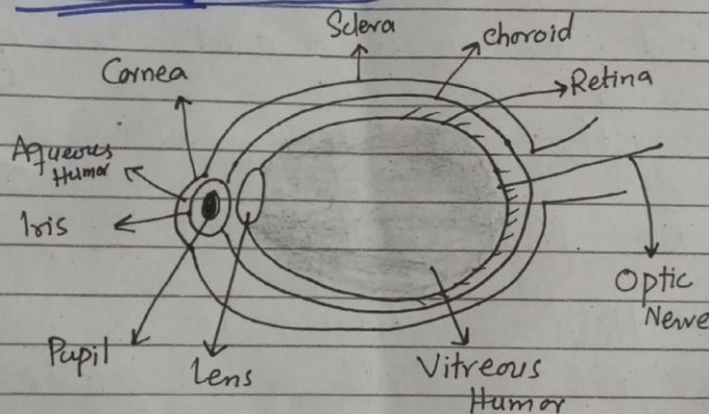 Sclera
Choroid
Cornea
Retina
Aqueous
Humor
Iris
Optic
Nerve
Pupil
Lens
Vitreous
Humor